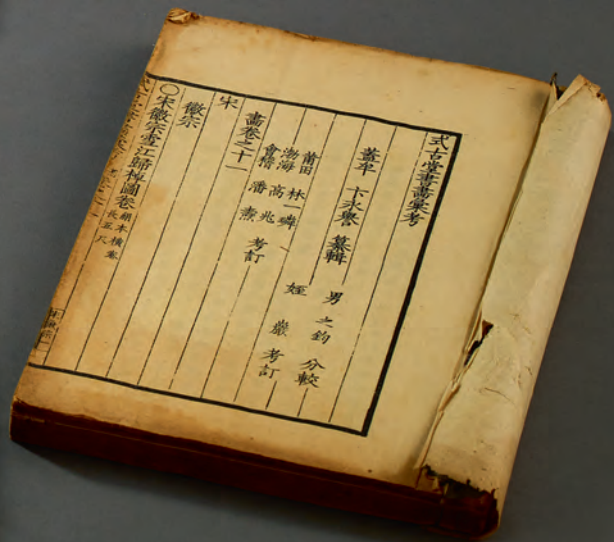 式古堂書畵彙考
蓋牟 卞永譽 纂輯 男 之鈞 分較
姪 巖 考訂
莆田 林一璘
渤海 高兆
會稽 潘燾 考訂
畵卷之十一
宋
徽宗
○宋徽宗雪江歸棹圖卷 絹本橫卷
長五尺